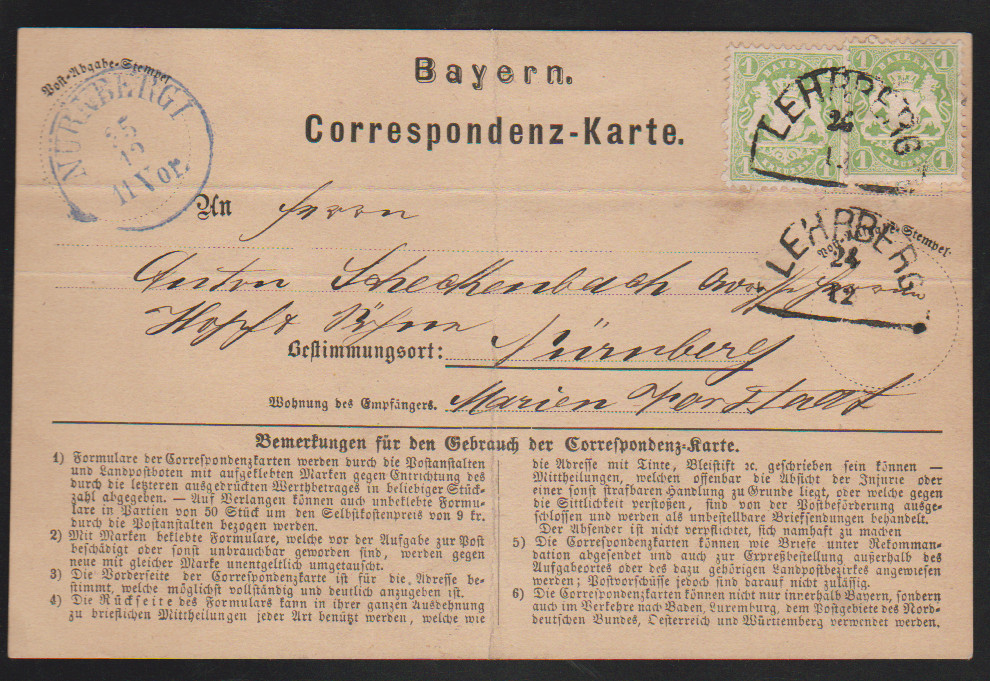 Bayern.
Correspondenz-Karte.
Post-Abgabe-Stempel
NÜRNBERG I
25
12
11 Vor.
BAYERN
1 1
1 1
KREUZER
BAYERN
1 1
1 1
KREUZER
LEHRBERG
24
12
Post-Aufgabe-Stempel
LEHRBERG
24
12
An Herrn
Anton Scheckenbach
Hopf & Söhne
Bestimmungsort: Nürnberg
Wohnung des Empfängers. Marien Vorstadt
Bemerkungen für den Gebrauch der Correspondenz-Karte.
1) Formulare der Correspondenzkarten werden durch die Postanstalten
und Landpostboten mit aufgeklebten Marken gegen Entrichtung des
durch die letzteren ausgedrückten Werthbetrages in beliebiger Stück-
zahl abgegeben. — Auf Verlangen können auch unbeklebte Formu-
lare in Partien von 50 Stück um den Selbstkostenpreis von 9 kr.
durch die Postanstalten bezogen werden.
2) Mit Marken beklebte Formulare, welche vor der Aufgabe zur Post
beschädigt oder sonst unbrauchbar geworden sind, werden gegen
neue mit gleicher Marke unentgeltlich umgetauscht.
3) Die Vorderseite der Correspondenzkarte ist für die Adresse be-
stimmt, welche möglichst vollständig und deutlich anzugeben ist.
4) Die Rückseite des Formulars kann in ihrer ganzen Ausdehnung
zu brieflichen Mittheilungen jeder Art benützt werden, welche wie
die Adresse mit Tinte, Bleistift ꝛc. geschrieben sein können —
Mittheilungen, welchen offenbar die Absicht der Injurie oder
einer sonst strafbaren Handlung zu Grunde liegt, oder welche gegen
die Sittlichkeit verstoßen, sind von der Postbeförderung ausge-
schlossen und werden als unbestellbare Briefsendungen behandelt.
Der Absender ist nicht verpflichtet, sich namhaft zu machen
5) Die Correspondenzkarten können wie Briefe unter Rekomman-
dation abgesendet und auch zur Expreßbestellung außerhalb des
Aufgabeortes oder des dazu gehörigen Landpostbezirks angewiesen
werden; Postvorschüsse jedoch sind darauf nicht zulässig.
6) Die Correspondenzkarten können nicht nur innerhalb Bayern, sondern
auch im Verkehre nach Baden, Luxemburg, dem Postgebiete des Nord-
deutschen Bundes, Oesterreich und Württemberg verwendet werden.